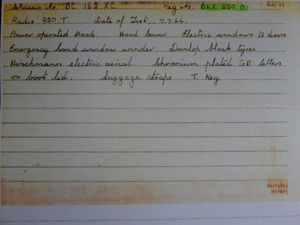 Chassis No. BC 163 XC Reg. No. BLX 229.B.
Radio 920.T. Date of Inst. 7.7.64.
Power operated Hood Hood cover. Electric windows to doors
Emergency hand window winder. Dunlop black tyres.
Hirschmann electric aerial. Chromium plated GB letters
on boot lid. Luggage straps T. Key